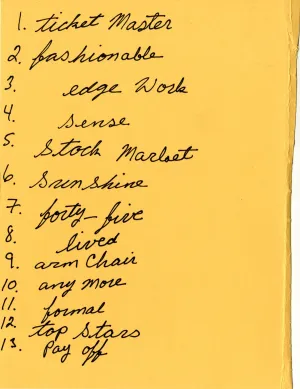 1. ticket Master
2. fashionable
3. edge Work
4. sense
5. Stock Market
6. Sunshine
7. forty-five
8. lived
9. arm Chair
10. any more
11. formal
12. top Stars
13. Pay off